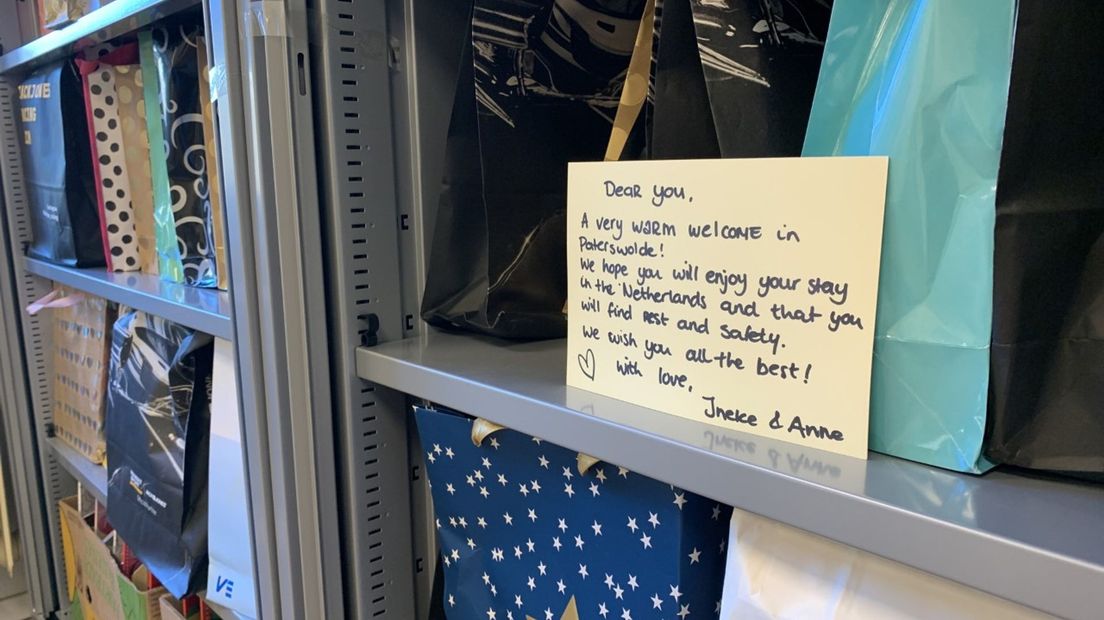 DEAR YOU,
A very WARM WELCOME in
Paterswolde!
We hope you will enjoy your stay
in the Netherlands and that you
will find REST and safety.
We wish you all the best!
with love,
Ineke & Anne